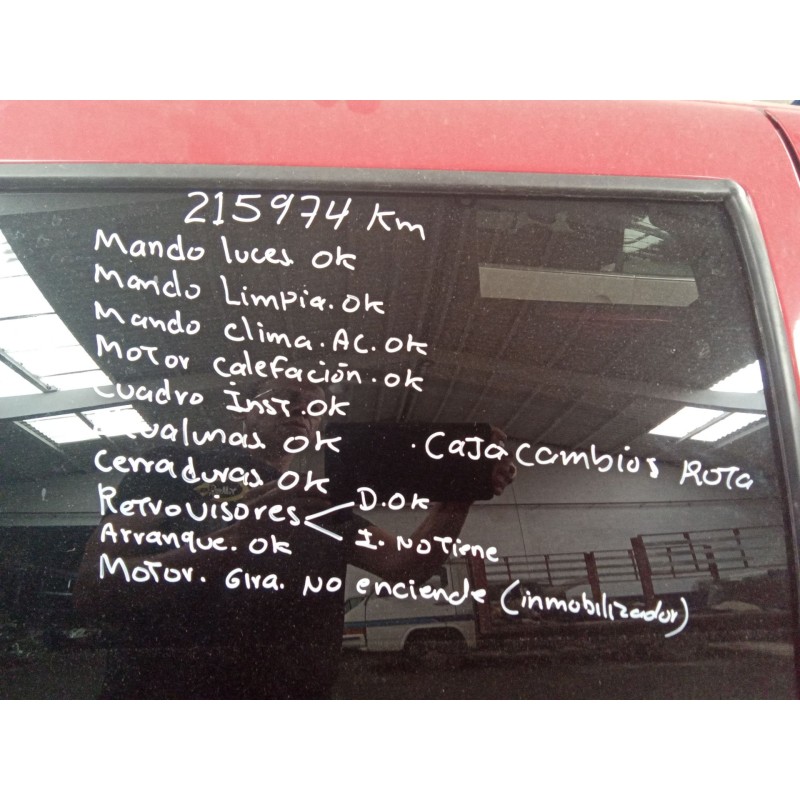 215974 Km
Mando luces OK
Mando Limpia. OK
Mando clima. AC. OK
Motor Calefación. OK
Cuadro Inst. OK
OK
· Caja cambios Rota
Cerraduras OK
Retrovisores
D. OK
I. No Tiene
Arranque. OK
Motor. Gira. No enciende (inmobilizador)